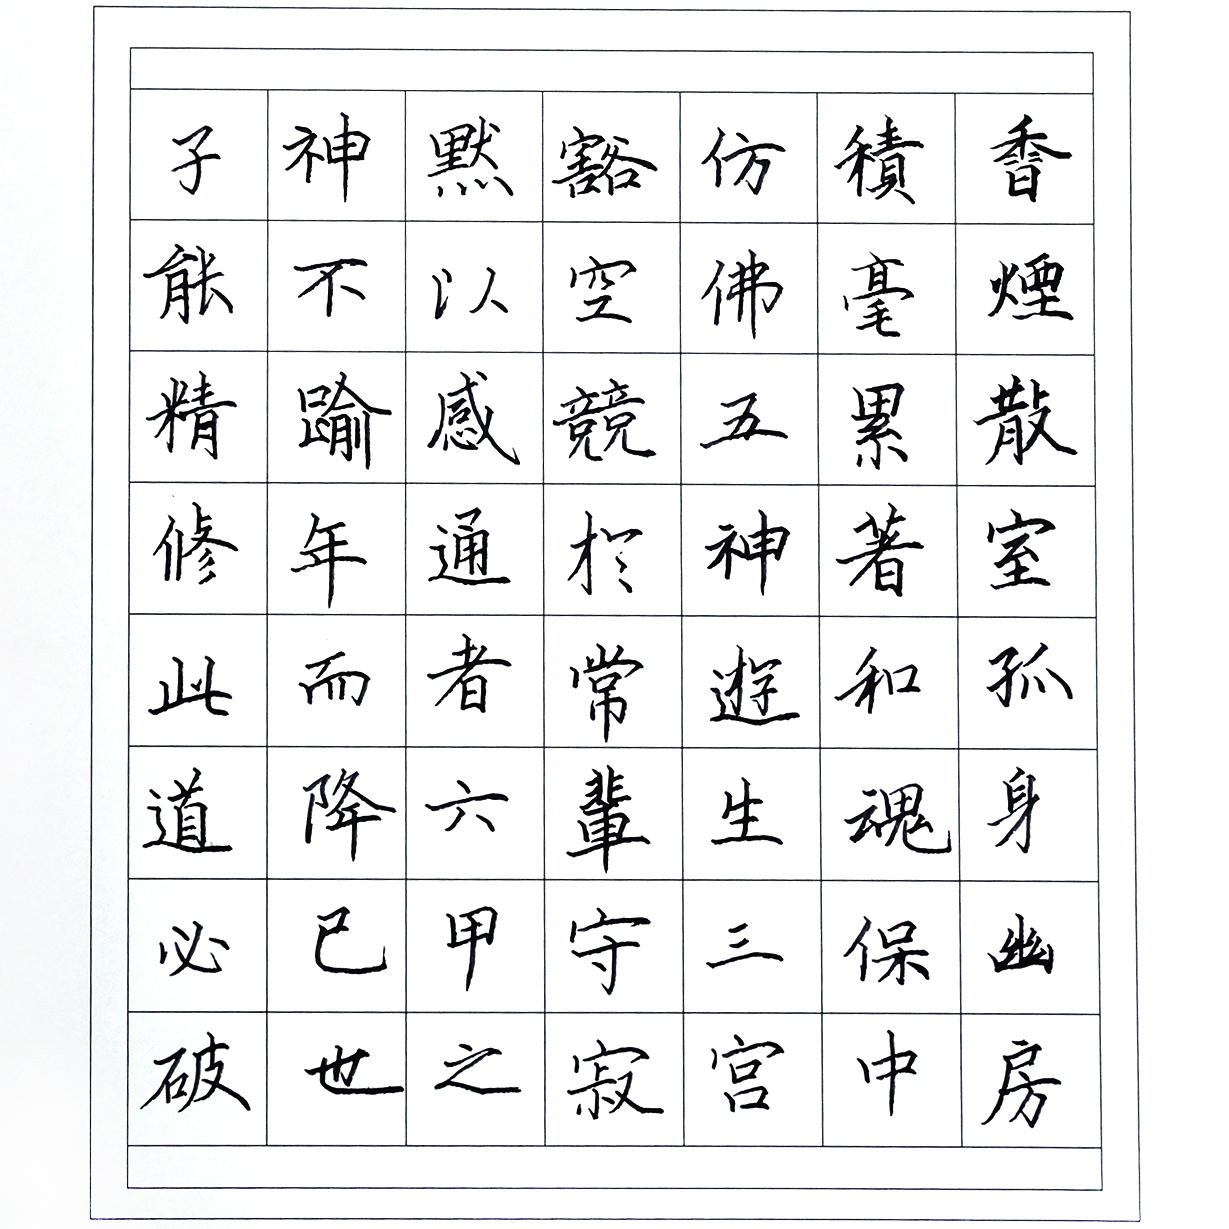 香煙散室孤身幽房
積毫累著和魂保中
仿佛五神遊生三宮
豁空競於常輩守寂
默以感通者六甲之
神不踰年而降已也
子能精修此道必破